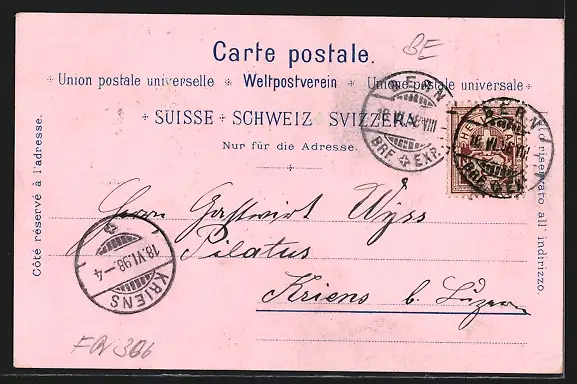 BE
Carte postale.
Union postale universelle Weltpostverein Union postale universale
SUISSE SCHWEIZ SVIZZERA
Nur für die Adresse.
Côté réservé à l'adresse.
Lato riservato all' indirizzo.
BERN
BRF EXP.
BERN
Herrn Gastwirt Wyss
Pilatus
Kriens b. Luzern
18.VI.98-4
KRIENS